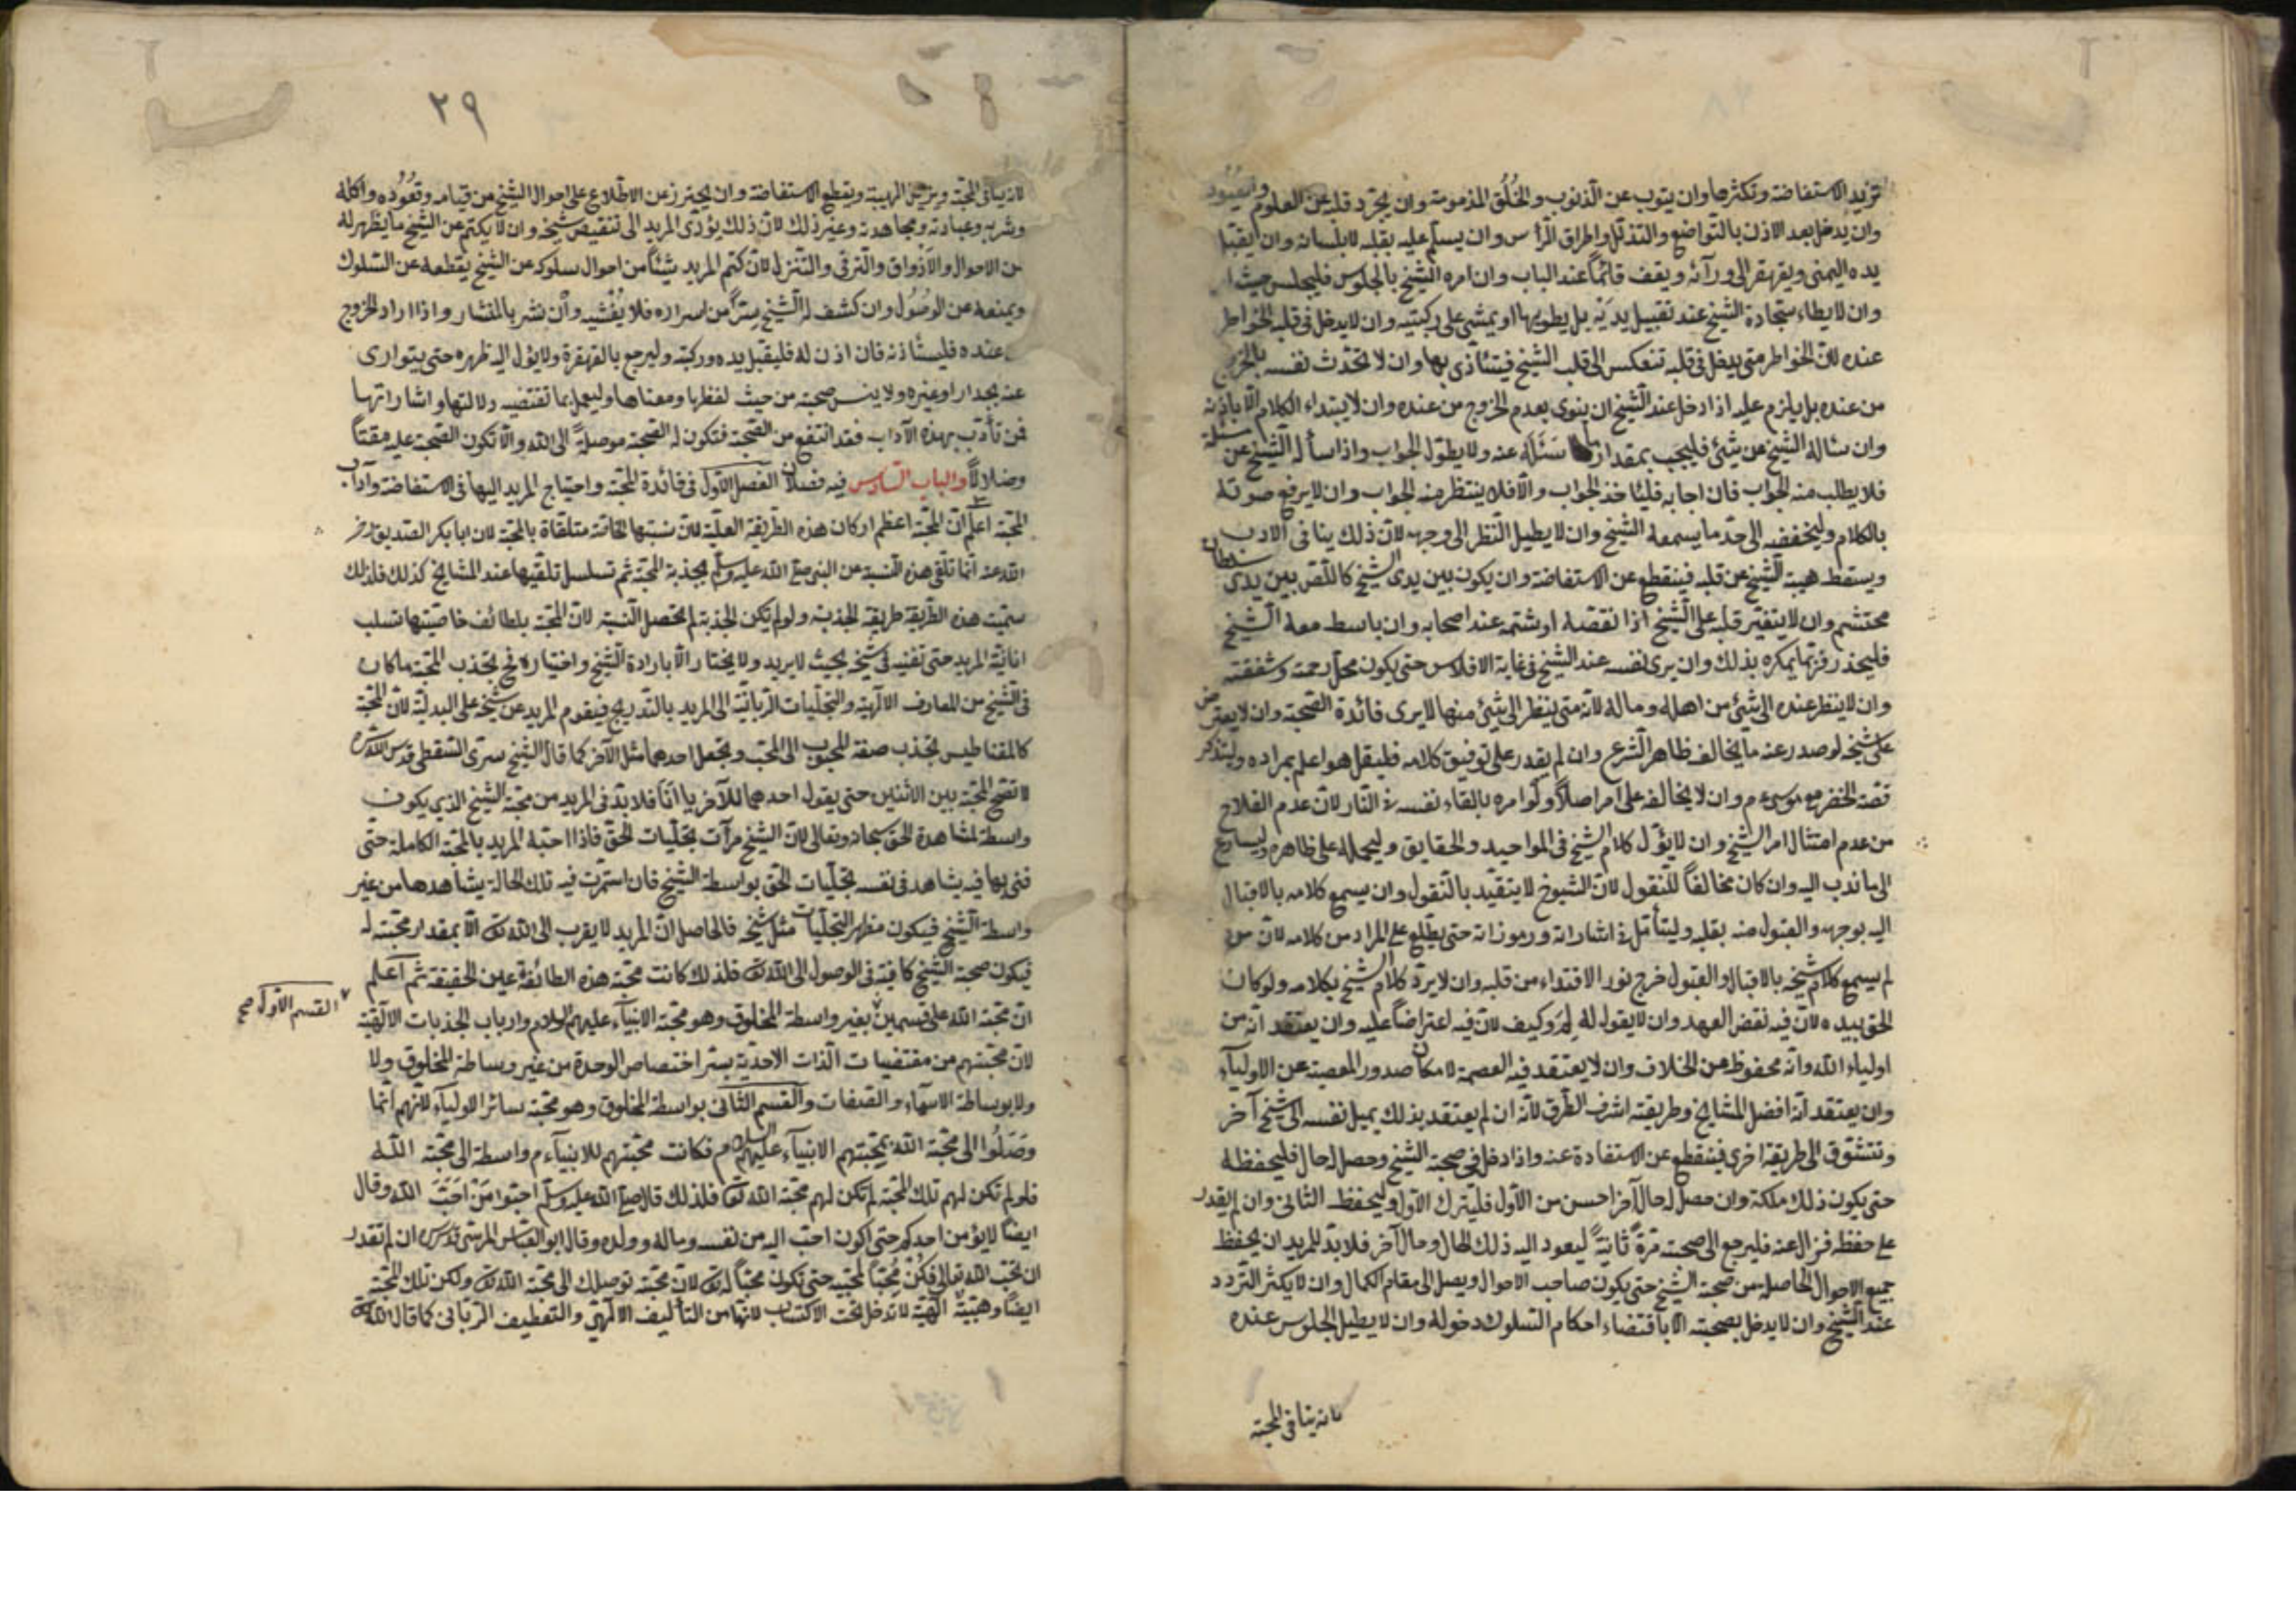 تزيد الاستفاضة وتكثرها وان يتوب عن الذنوب والخُلُق المذمومة وان يجرّد قلبه عن العلوم والقيود
وان يدخل بعد الاذن بالتواضع والتذلّل واطراق الرأس وان يسلّم عليه بقلبه لا بلسانه وان يقبّل
يده اليمنى ويقهقر الى ورآئه ويقف قائماً عند الباب وان امره الشيخ بالجلوس فليجلس حيث
وان لا يطاء سجّادة الشيخ عند تقبيل يديه بل يطويها او يمشى على ركبتيه وان لا يدخل فى قلبه الخواطر
عنده لانّ الخواطر متى يدخل فى قلبه تنعكس الى قلب الشيخ فيتأذى بها وان لا تحدّث نفسه بالخروج
من عنده بل يلزم عليه اذا دخل عند الشيخ ان ينوى بعدم الخروج من عنده وان لا يبتداء الكلام الا باذنه
وان سئاله الشيخ عن شئ فليجب بمقدار ما سَئَلَه عنه ولا يطوّل الجواب واذا سأله الشيخ عن مسئلة
فلا يطلب منه الجواب فان اجابه فليأخذ الجواب والّا فلا ينتظر منه الجواب وان لا يرفع صوته
بالكلام وليخفضه الى حدّ ما يسمعه الشيخ وان لا يطيل النظر الى وجهه لانّ ذلك ينافى الادب
ويسقط هيبة الشيخ عن قلبه فينقطع عن الاستفاضة وان يكون بين يدى الشيخ كاللصّ بين يدى سلطان
محتشم وان لا يتغيّر قلبه على الشيخ اذا نقصه او شتمه عند اصحابه وان باسط معه الشيخ
فليحذر فربّما يمكره بذلك وان يرى نفسه عند الشيخ فى غاية الافلاس حتى يكون محلّ رحمته وشفقته
وان لا ينظر عنده الى شئ من اهله وماله لانه متى ينظر الى شئ منها لا يرى فائدة الصحبة وان لا يعترض
على شيخه لو صدر عنه ما يخالف ظاهر الشرع وان لم يقدر على توفيق كلامه فليقل هو اعلم بمراده وليتذكر
قصّة الخضر مع موسى عم وان لا يخالفه على امر اصلاً ولو امره بالقاء نفسه فى النار لانّ عدم الفلاح
من عدم امتثال امر الشيخ وان لا يؤوّل كلام الشيخ فى المواجيد والحقايق وليحمله على ظاهره وليسارع
الى ما ندب اليه وان كان مخالفاً للنقول لانّ الشيوخ لا يتقيّد بالنقول وان يسمع كلامه بالاقبال
اليه بوجهه والقبول منه بقلبه وليتأمّل فى اشاراته ورموزاته حتى يطّلع على المراد من كلامه لانّ من
لم يسمع كلام شيخه بالاقبال والقبول خرج نور الاقتداء من قلبه وان لا يردّ كلام الشيخ بكلامه ولو كان
الحق بيده لانّ فيه نقض العهد وان لا يقول له لِمَ وكيف لانّ فيه اعتراضاً عليه وان يعتقد انّه من
اولياء الله وانّه محفوظ من الخلاف وان لا يعتقد فيه العصمة لامكان صدور المعصية عن الاوليآء
وان يعتقد انّه افضل المشايخ وطريقته اشرف الطرق لانّه ان لم يعتقد بذلك يميل نفسه الى شيخ آخر
وتتشوّق الى طريقة اخرى فينقطع عن الاستفادة عنه واذا دخل فى صحبة الشيخ وحصل له حال فليحفظه
حتى يكون ذلك ملكة وان حصل له حال آخر احسن من الاول فليترك الاول وليحفظ الثانى وان لم يقدر
على حفظه فزال عنه فليرجع الى صحبته مرّة ثانيةً ليعود اليه ذلك الحال وحال آخر فلا بدّ للمريد ان يحفظ
جميع الاحوال الحاصلة من صحبة الشيخ حتى يكون صاحب الاحوال ويصل الى مقام الكمال وان لا يكثر التردد
عند الشيخ وان لا يدخل بصحبته الا باقتضاء احكام السلوك دخوله وان لا يطيل الجلوس عنده
لانه ينافى المحبة
٣٩
لانه ينافى المحبّة ويزيل الهيبة ويقطع الاستفاضة وان يحترز عن الاطلاع على احوال الشيخ من قيامه وقُعُوده واكله
وشربه وعبادته ومجاهدته وغير ذلك لانّ ذلك يؤدى المريد الى تنقيص شيخه وان لا يكتم عن الشيخ ما يظهر له
من الاحوال والاذواق والترقى والتنزل لانّ كتم المريد شيئاً من احوال سلوكه عن الشيخ يقطعه عن السلوك
ويمنعه عن الوصُول وان كشف له الشيخ سرّاً من اسراره فلا يُفشيه وان نشر بالمنشار واذا اراد الخروج
عنده فليستاذنه فان اذن له فليقبّل يده وركبته وليرجع بالقهقرة ولا يؤل اليه ظهره حتى يتوارى
عنه بجدار او غيره ولا ينس صحبته من حيث لفظها ومعناها وليعمل بما تقتضيه دلالتها واشاراتها
فمن تأدّب بهذه الآداب فقد انتفع من الصحبة فتكون له الصحبة موصلةً الى الله والّا تكون الصحبة عليه مقتاً
وضلالاً والباب السادس فيه فصلان الفصل الاول فى فائدة المحبّة واحتياج المريد اليها فى الاستفاضة وآداب
المحبّة اعلم انّ المحبّة اعظم اركان هذه الطريقة العليّة لانّ نسبتها الخاصّة متلقاة بالمحبّة لان ابا بكر الصديق رضى
الله عنه انّما تلقى هذه النسبة عن النبى صلى الله عليه وسلم بجذبة المحبّة ثم تسلسل تلقيها عند المشايخ كذلك فلذلك
سمّيت هذه الطريقة طريقة الجذبة ولو لم يكن الجذبة لم تحصل النسبة لانّ المحبّة بلطائف خاصيّتها تسلب
انانيّة المريد حتى تفنيه فى شيخه بحيث لا يريد ولا يختار الّا بارادة الشيخ واختياره فح تجذب المحبّة ما كان
فى الشيخ من المعارف الالهيّة والتجليات الربانيّة الى المريد بالتدريج فيقوم المريد عن شيخه على البدليّة لانّ المحبّة
كالمقناطيس تجذب صفة المحبوب الى المحبّ وتجعل احدهما مثل الآخر كما قال الشيخ سرّى السقطى قدس الله سره
لا تصحّ المحبّة بين الاثنين حتى يقول احدهما للآخر يا انَا فلا بدّ فى المريد من محبّة الشيخ الذى يكون
واسطة لمشاهدة الحق سبحانه وتعالى لانّ الشيخ مرآت تجلّيات الحق فاذا احبّه المريد بالمحبّة الكاملة حتى
فنى بها فيه يشاهد فى نفسه تجلّيات الحق بواسطة الشيخ فان استمرّت فيه تلك الحالة يشاهدها من غير
واسطة الشيخ فيكون مظهر التجليات مثل شيخه فالحاصل انّ المريد لا يقرب الى الله تعالى الّا بمقدار محبّته له
فيكون صحبة الشيخ كافية فى الوصول الى الله تعالى فلذلك كانت محبّة هذه الطائفة عين الحقيقة ثم اعلم
انّ محبّة الله على قسمين بغير واسطة المخلوق وهو محبّة الانبيآء عليهم السلام وارباب الجذبات الالهيّة
القسم الاول صح
لانّ محبّتهم من مقتضيات الذات الاحديّة بسرّ اختصاص الوحدة من غير وساطة المخلوق ولا
ولا بوساطة الاسماء والصفات والقسم الثانى بواسطة المخلوق وهو محبّة سائر الاوليآء لانّهم انّما
وَصَلُوا الى محبّة الله بمحبّتهم الانبيآء عليهم السلام فكانت محبّتهم للانبيآء م واسطة الى محبّة الله
فلو لم تكن لهم تلك المحبّة لم تكن لهم محبّة الله تعالى فلذلك قال صلى الله عليه وسلم احبّوا مَنْ احَبَّ الله وقال
ايضاً لا يؤمن احدكم حتى اكون احبّ اليه من نفسه وماله وولده وقال ابو العباس المرسى قدس سره ان لم تقدر
ان تحبّ الله تعالى فكُنْ مُحبّاً لمحبّيه حتى تكون محبّاً له تعالى لانّ محبّته توصلك الى محبّة الله تعالى ولكن تلك المحبّة
ايضاً وهبيّة الهيّة لا تدخل تحت الاكتساب لانّها من التأليف الالهى والتعطيف الربانى كما قال الله تعالى